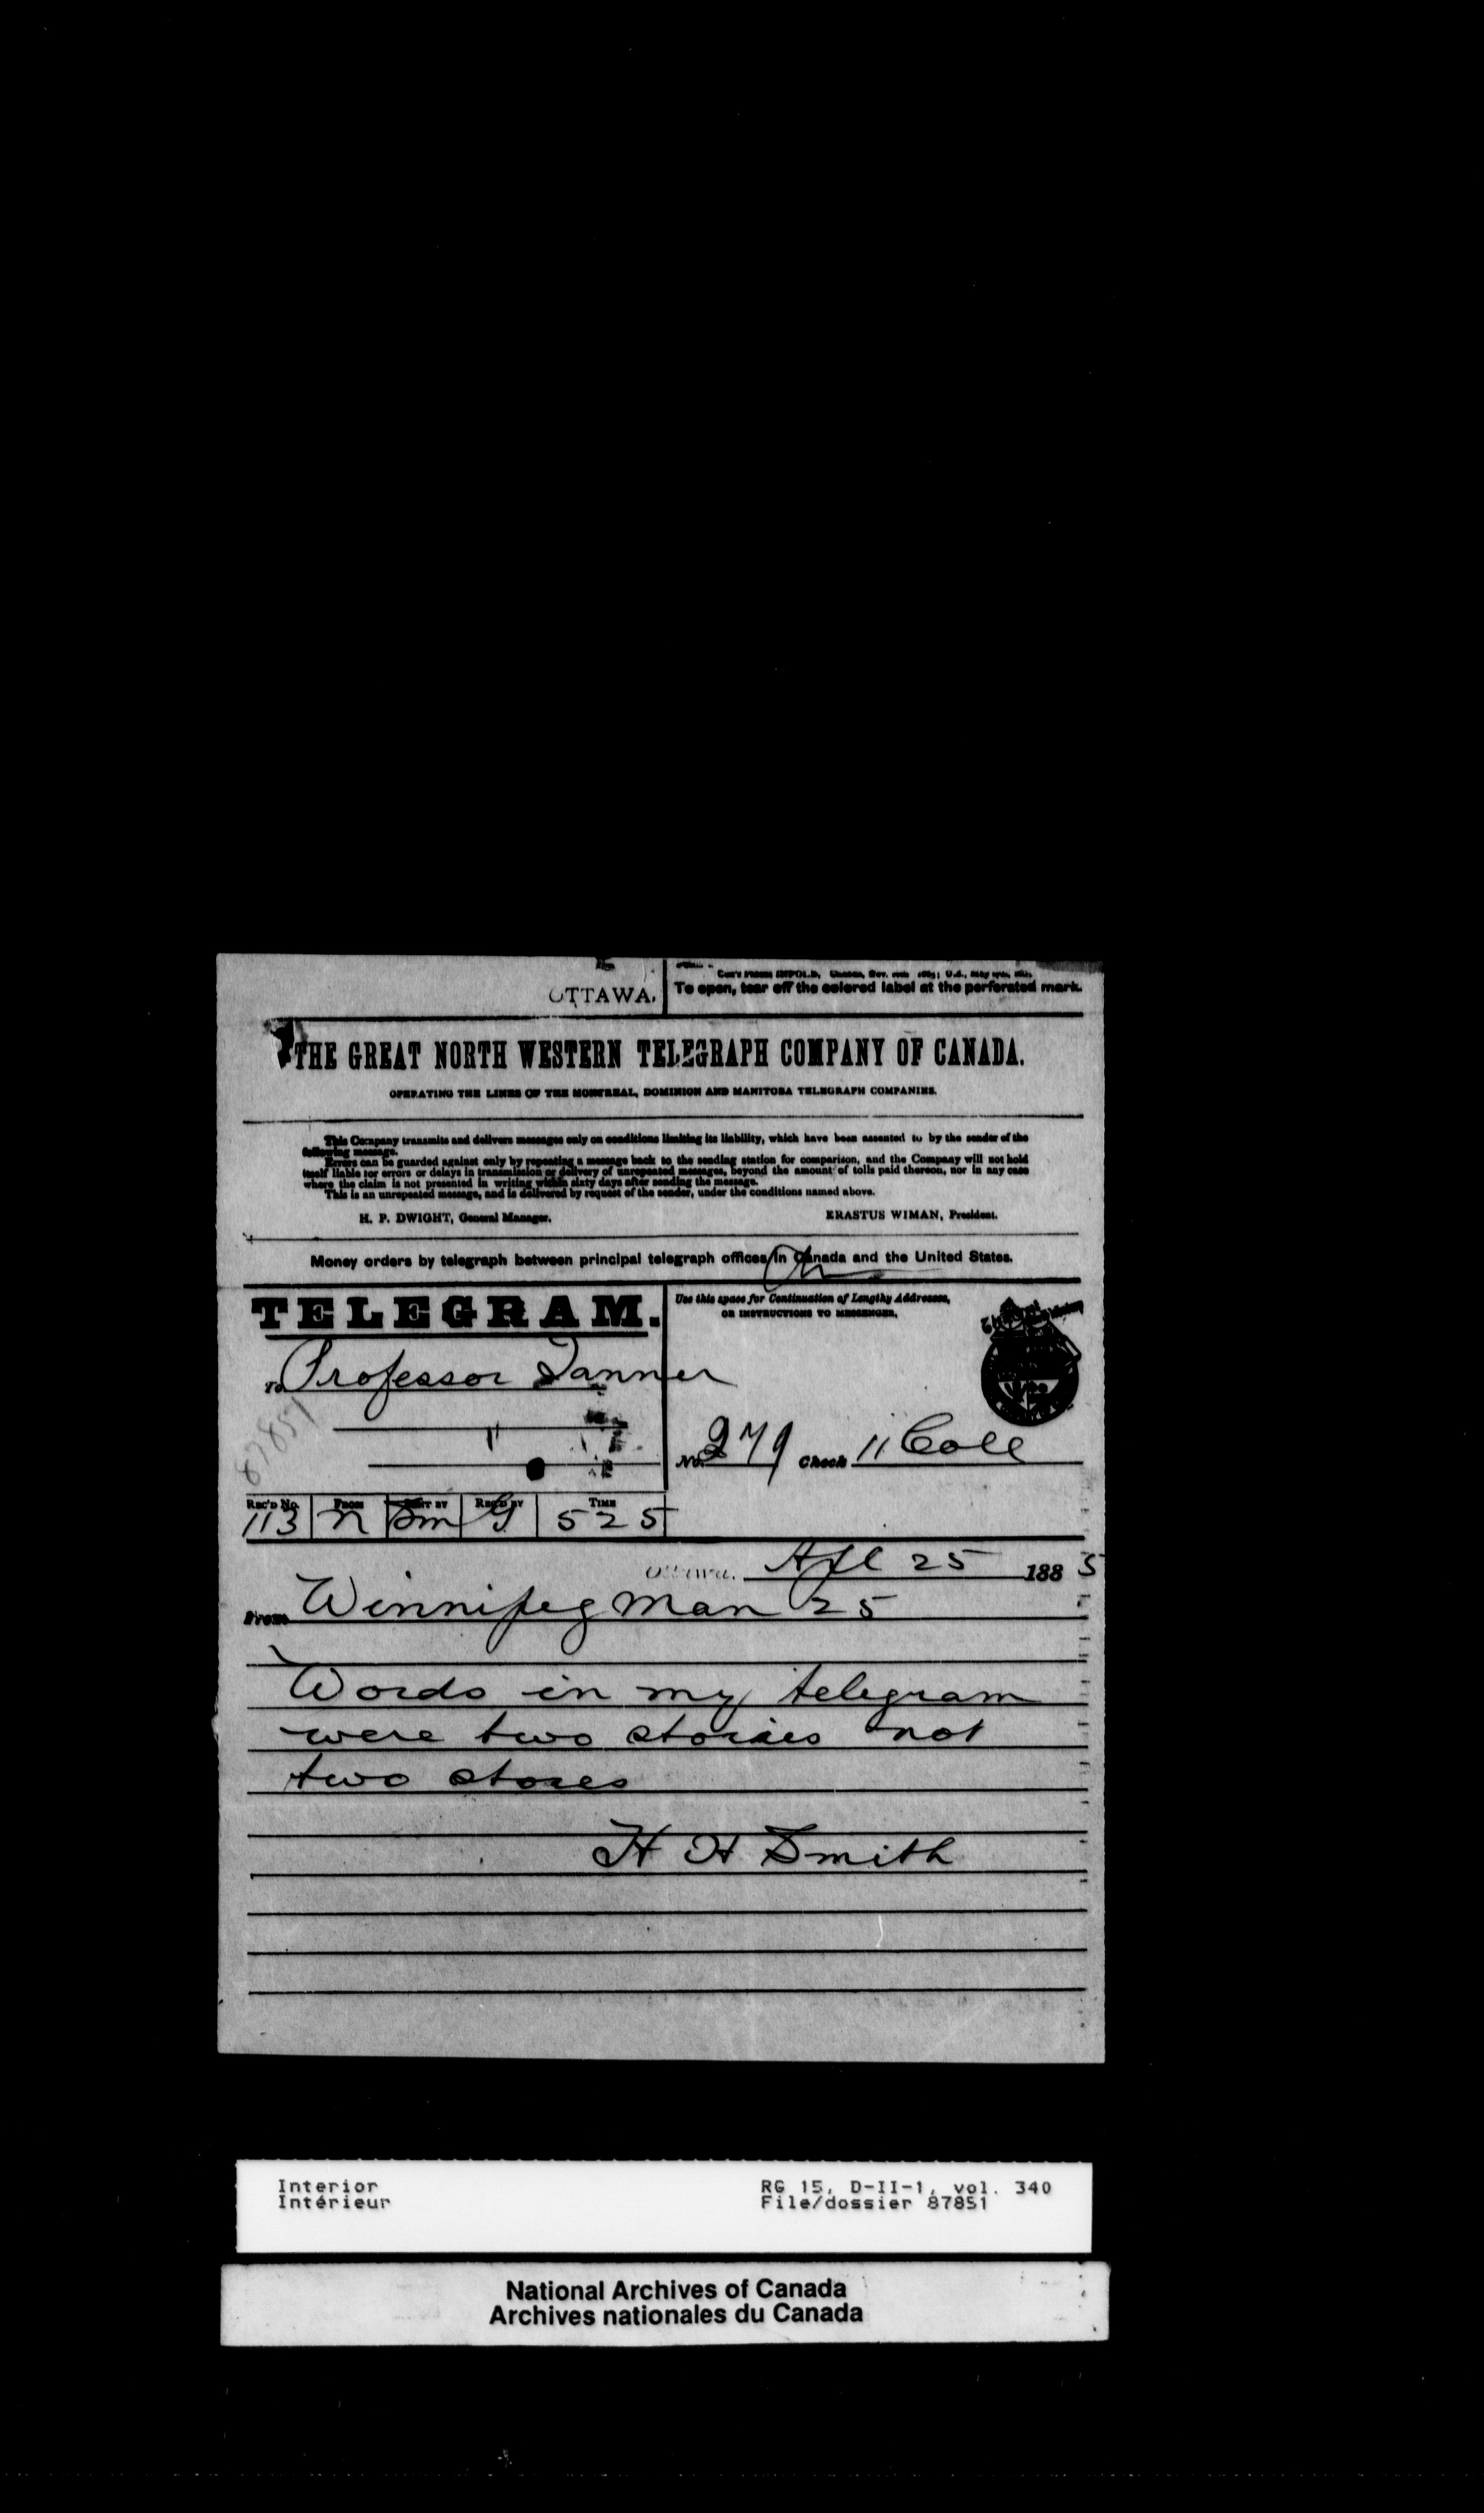 OTTAWA.
To open, tear off the colored label at the perforated mark.
THE GREAT NORTH WESTERN TELEGRAPH COMPANY OF CANADA.
OPERATING THE LINES OF THE MONTREAL, DOMINION AND MANITOBA TELEGRAPH COMPANIES.
This Company transmits and delivers messages only on conditions limiting its liability, which have been assented to by the sender of the
following message.
Errors can be guarded against only by repeating a message back to the sending station for comparison, and the Company will not hold
itself liable for errors or delays in transmission or delivery of unrepeated messages, beyond the amount of tolls paid thereon, nor in any case
where the claim is not presented in writing within sixty days after sending the message.
This is an unrepeated message, and is delivered by request of the sender, under the conditions named above.
H. P. DWIGHT, General Manager.
ERASTUS WIMAN, President.
Money orders by telegraph between principal telegraph offices in Canada and the United States.
TELEGRAM.
Use this space for Continuation of Lengthy Addresses,
OR INSTRUCTIONS TO MESSENGER.
To Professor Tanner
87851
No. 279 Check 11 Coll
REC'D No. FROM SENT BY REC'D BY TIME
113 n Sm G 5 25
Ottawa. Apl 25 1885
From Winnipeg Man 25
Words in my telegram
were two stories not
two stores
H H Smith
Interior
Intérieur
RG 15, D-II-1, vol. 340
File/dossier 87851
National Archives of Canada
Archives nationales du Canada